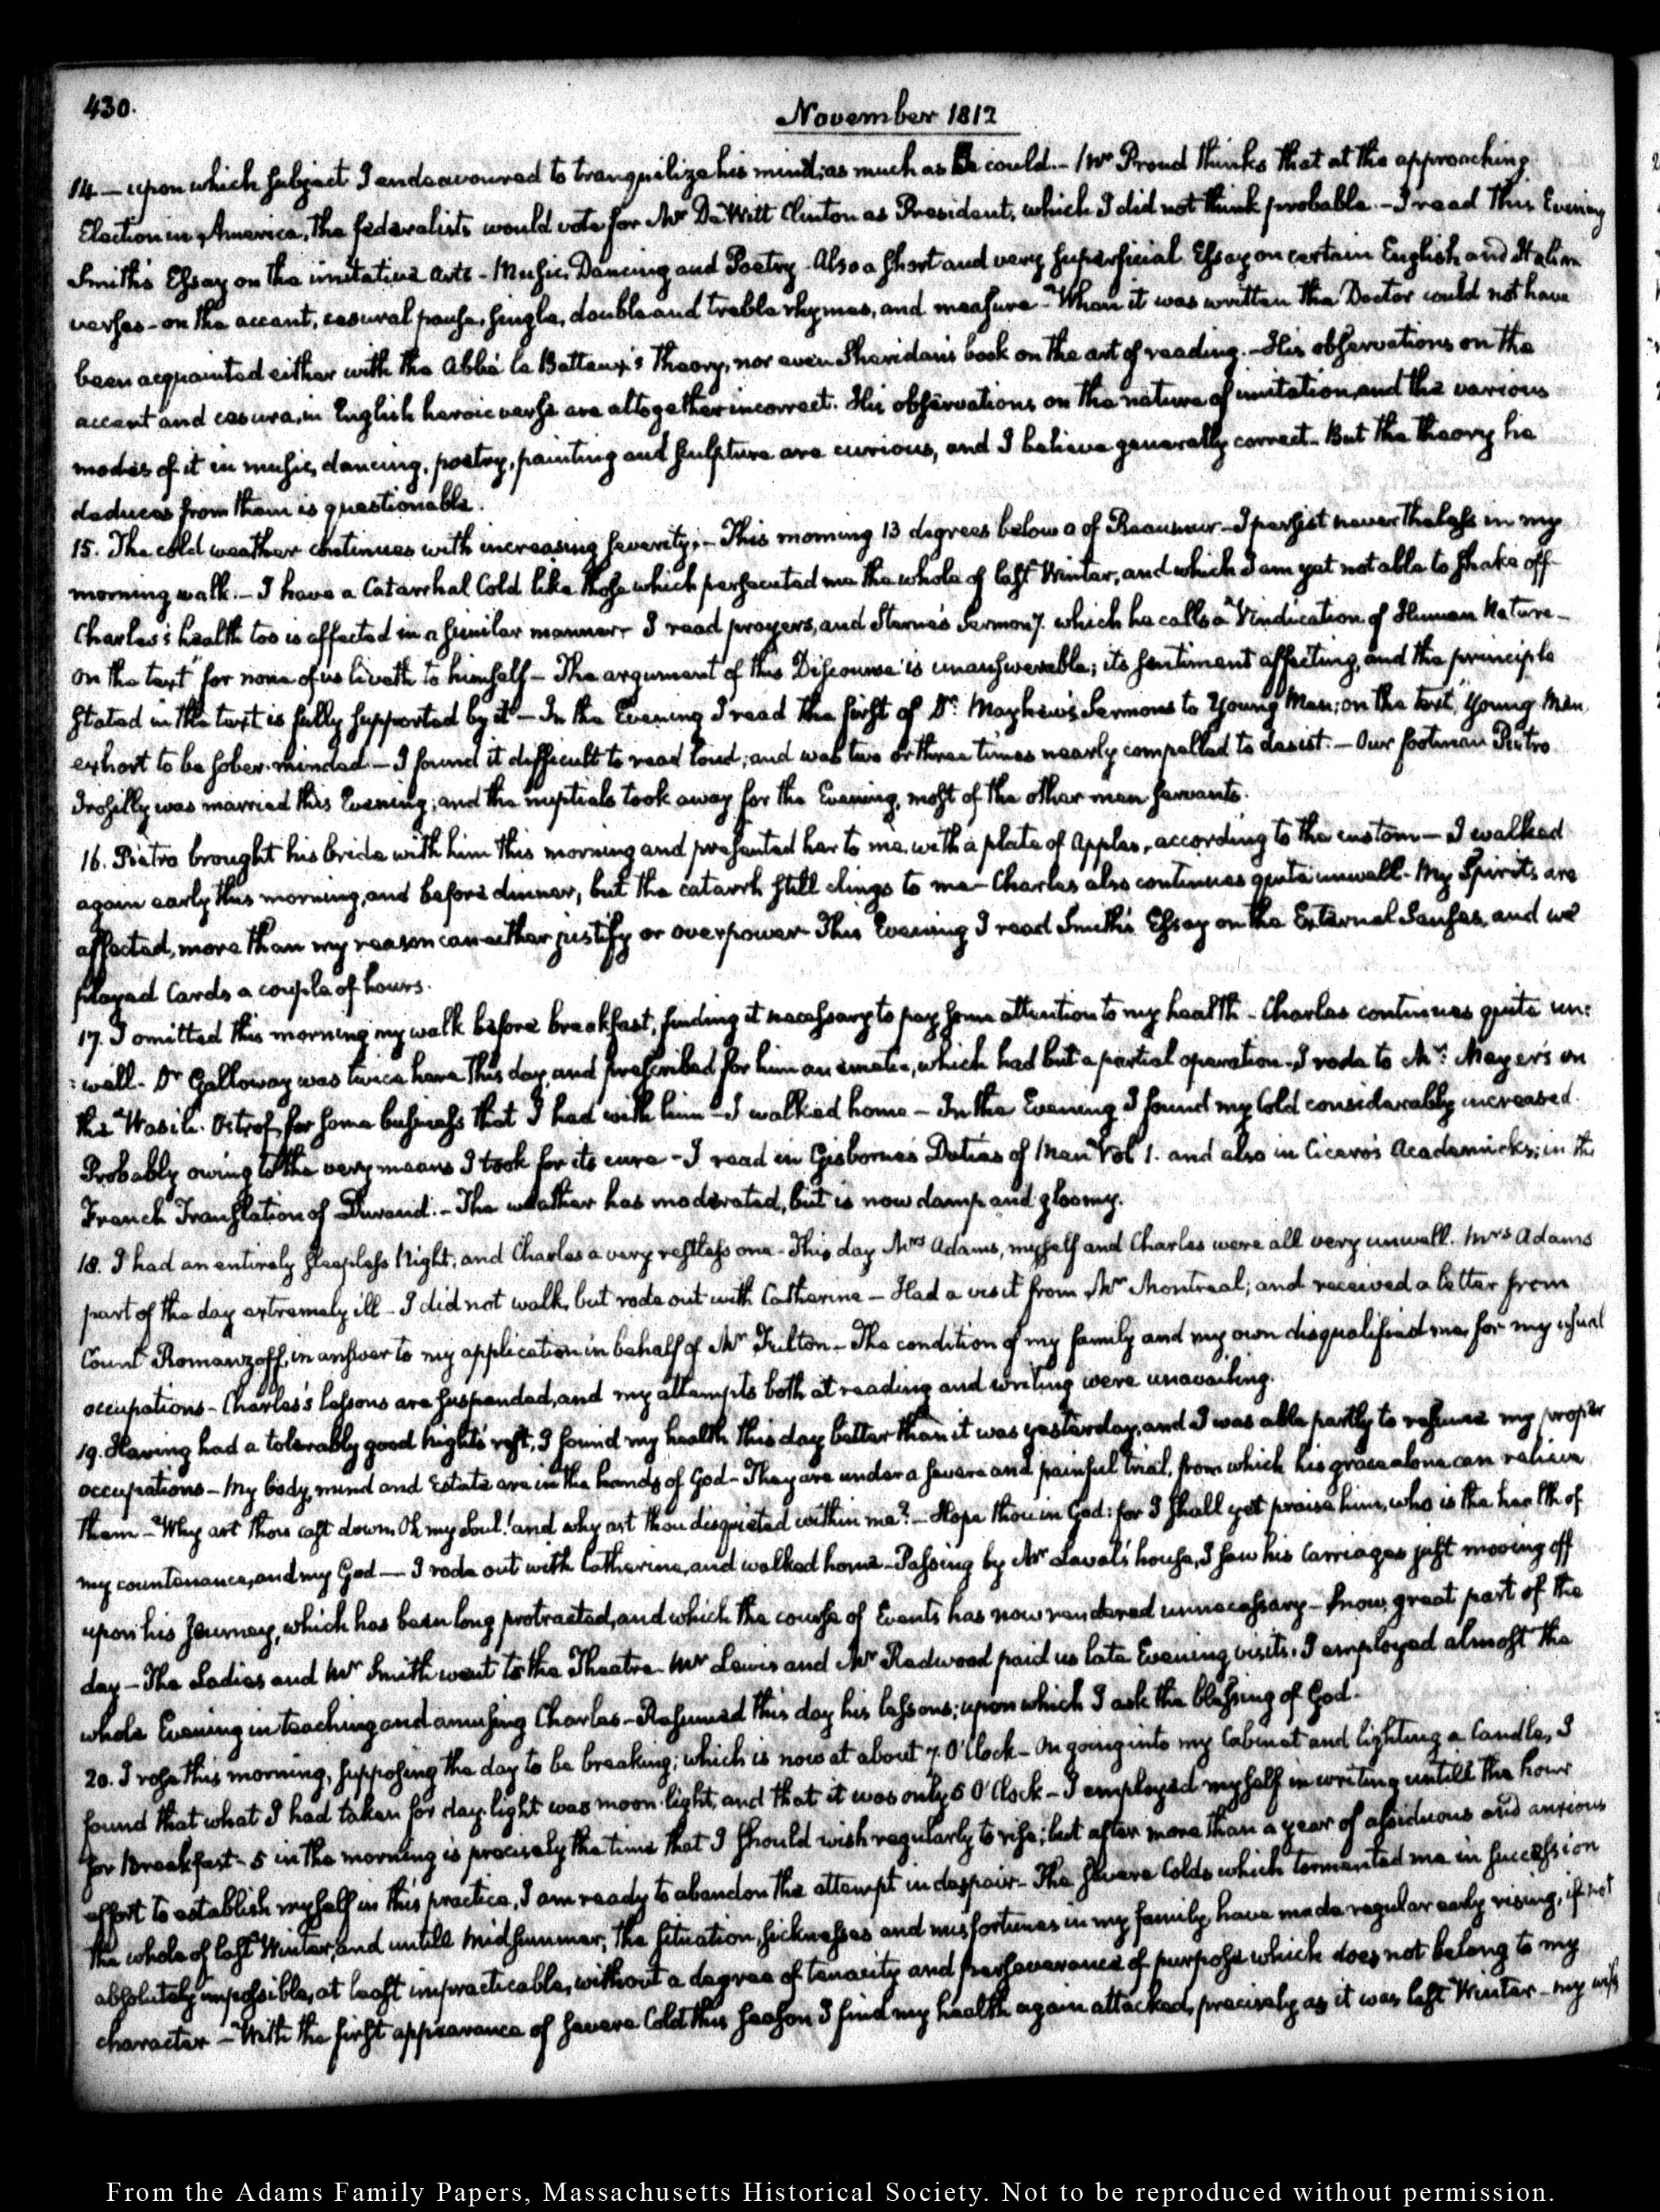 430.
November 1812
14 — upon which subject I endeavoured to tranquilize his mind; as much as I could.— Mr Proud thinks that at the approaching
Election in America, the federalists would vote for Mr De Witt Clinton as President, which I did not think probable.— I read this Evening
Smith's Essay on the imitative arts - Music, Dancing and Poetry - Also a short and very superficial Essay on certain English and Italian
verses - on the accent, cesural pause, single, double and treble rhymes, and measure - When it was written the Doctor could not have
been acquainted either with the Abbé le Batteux's Theory, nor even Sheridan's book on the art of reading.— His observations on the
accent and cesura, in English heroic verse are altogether incorrect. His observations on the nature of imitation, and the various
modes of it in music, dancing, poetry, painting and sculpture are curious, and I believe generally correct - But the theory he
deduces from them is questionable.
15. The cold weather continues with increasing severity.— This morning 13 degrees below 0 of Reaumur - I persist nevertheless in my
morning walk.— I have a Catarrhal Cold like those which persecuted me the whole of last Winter, and which I am yet not able to shake off -
Charles's health too is affected in a similar manner - I read prayers, and Sterne's Sermon 7. which he calls a Vindication of Human Nature -
on the text "for none of us liveth to himself - The argument of this Discourse is unanswerable; its sentiment affecting, and the principle
stated in the text is fully supported by it - In the Evening I read the first of Dr. Mayhew's Sermons to Young Men; on the text, "Young Men
exhort to be sober-minded.— I found it difficult to read loud; and was two or three times nearly compelled to desist.— Our footman Pietro
Irosilly was married this Evening; and the nuptials took away for the Evening, most of the other men servants.
16. Pietro brought his bride with him this morning and presented her to me, with a plate of Apples, according to the custom — I walked
again early this morning, and before dinner, but the catarrh still clings to me - Charles also continues quite unwell - My Spirits are
affected, more than my reason can either justify or overpower - This Evening I read Smith's Essay on the External Senses, and we
played Cards a couple of hours.
17. I omitted this morning my walk before breakfast, finding it necessary to pay some attention to my health - Charles continues quite un:
:well - Dr Galloway was twice here this day, and prescribed for him an emetic, which had but a partial operation. I rode to Mr. Meyer's on
the Wasili-Ostrof, for some business that I had with him - I walked home - In the Evening I found my Cold considerably increased.
Probably owing to the very means I took for its cure - I read in Gisborne's Duties of Man Vol 1. and also in Cicero's Academicks; in the
French Translation of Durand.— The weather has moderated, but is now damp and gloomy.
18. I had an entirely sleepless Night; and Charles a very restless one - This day Mrs Adams, myself and Charles were all very unwell. Mrs Adams
part of the day extremely ill - I did not walk, but rode out with Catherine — Had a visit from Mr Montreal; and received a letter from
Count Romanzoff, in answer to my application in behalf of Mr Fulton - The condition of my family and my own disqualified me for my usual
occupations - Charles's lessons are suspended, and my attempts both at reading and writing were unavailing.
19. Having had a tolerably good night's rest, I found my health this day better than it was yesterday, and I was able partly to resume my proper
occupations - My body, mind and Estate are in the hands of God - They are under a severe and painful trial, from which his grace alone can relieve
them - Why art thou cast down Oh my Soul! and why art thou disquieted within me? — Hope thou in God: for I shall yet praise him, who is the health of
my countenance, and my God — I rode out with Catherine, and walked home - Passing by Mr Laval's house, I saw his Carriages just moving off
upon his Journey, which has been long protracted, and which the course of Events has now rendered unnecessary - Snow, great part of the
day — The Ladies and Mr Smith went to the Theatre - Mr Lewis and Mr Redwood paid us late Evening visits. I employed almost the
whole Evening in teaching and amusing Charles - Resumed this day his lessons; upon which I ask the blessing of God.
20. I rose this morning, supposing the day to be breaking; which is now at about 7. O'Clock - On going into my Cabinet and lighting a Candle, I
found that what I had taken for day-light was moon-light, and that it was only 5 O'Clock - I employed myself in writing untill the hour
for Breakfast - 5 in the morning is precisely the time that I should wish regularly to rise; but after more than a year of assiduous and anxious
effort to establish myself in this practice, I am ready to abandon the attempt in despair - The severe Colds which tormented me in succession
the whole of last Winter, and untill Midsummer; the situation, sicknesses and misfortunes in my family, have made regular early rising, if not
absolutely impossible, at least impracticable, without a degree of tenacity and perseverance of purpose which does not belong to my
character — With the first appearance of severe Cold this season I find my health again attacked, precisely as it was last Winter - my wife
From the Adams Family Papers, Massachusetts Historical Society. Not to be reproduced without permission.